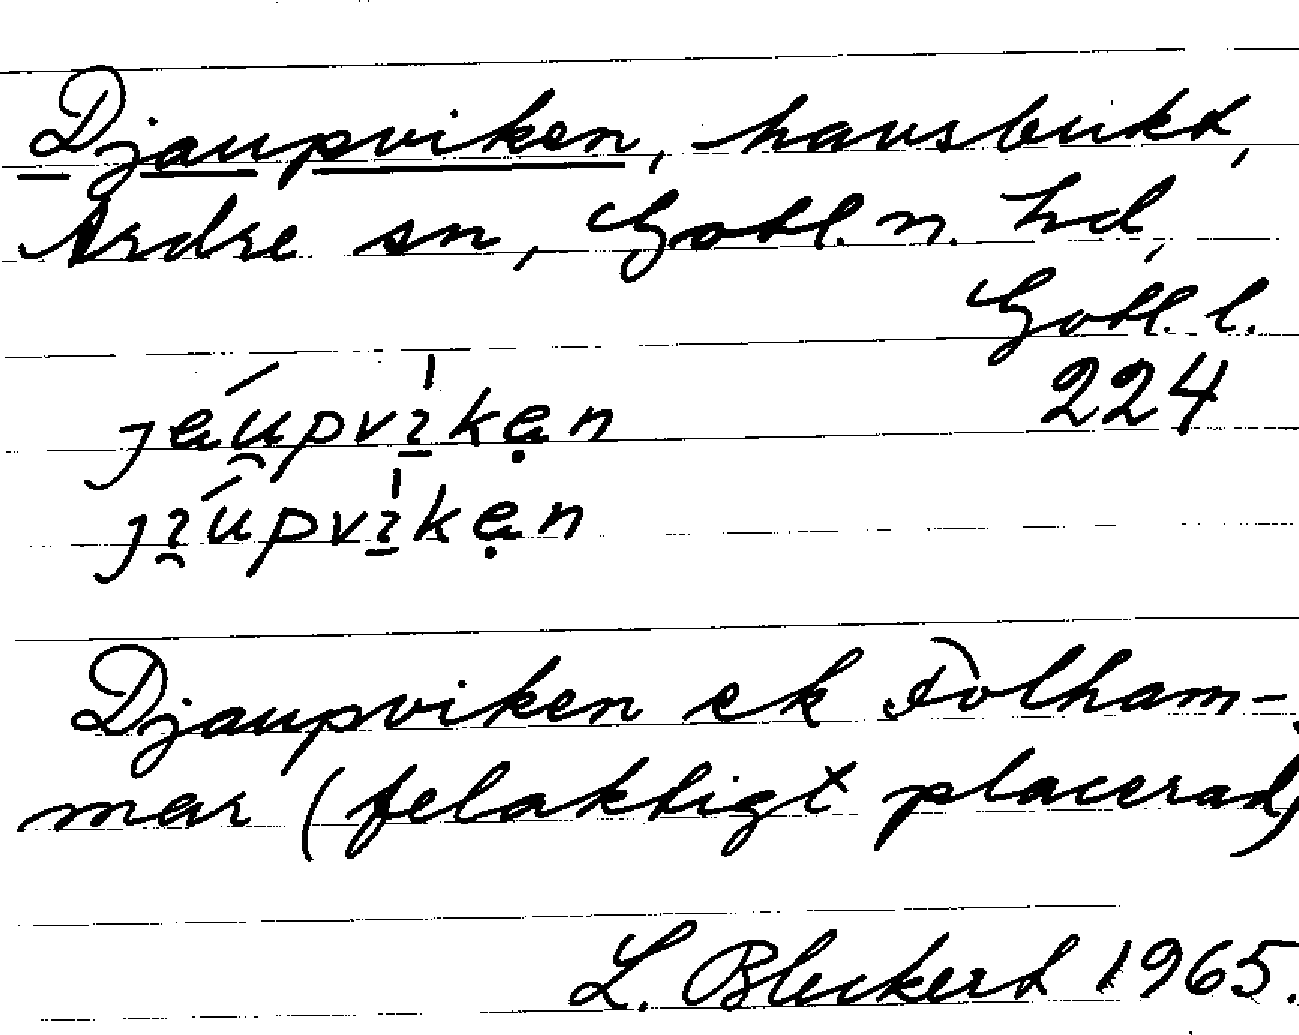 Djaupviken, havsbukt,
Ardre sn, Gotl. n. hd,
Gotl. l.
224
Djaupviken ek Folham-
mar (felaktigt placerad)
L. Bleckert 1965.